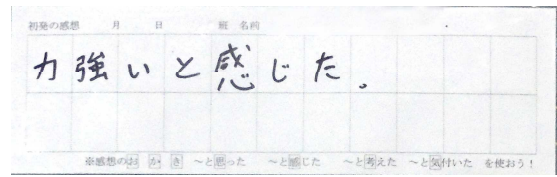 初発の感想 月 日 班 名前
力強いと感じた。
※感想のお か き ~と思った ~と感じた ~と考えた ~と気付いた を使おう!